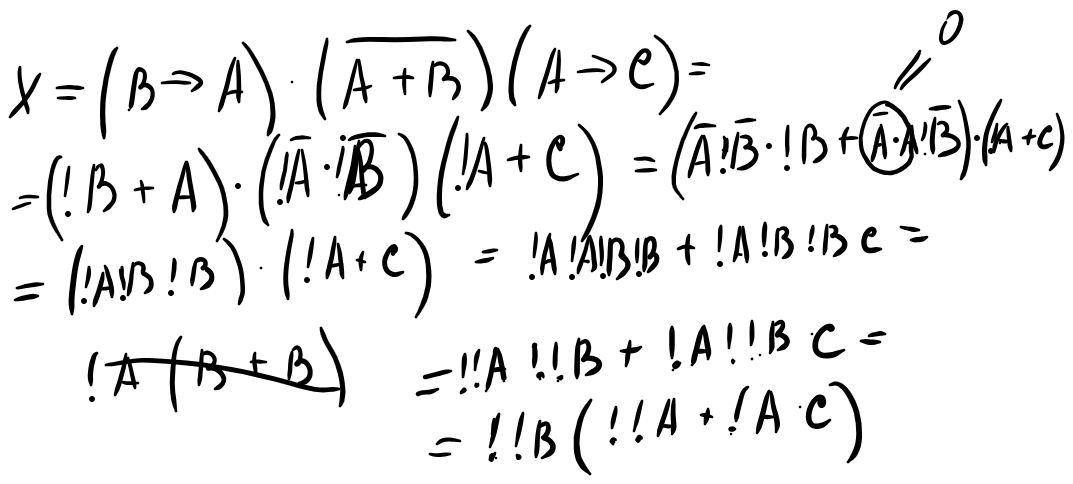 X = (B → A) · (\overline{A + B}) (A → C) =
= (!B + A) · (!Ā · !B̄) (!A + C) = (Ā!B̄ · !B + Ā·A!B̄) · (!A + C)
0
= (!A!B!B) · (!A + C) = !A!A!B!B + !A!B!BC =
!A(B + B) = !!A!!B + !A!!BC =
= !!B(!!A + !A·C)